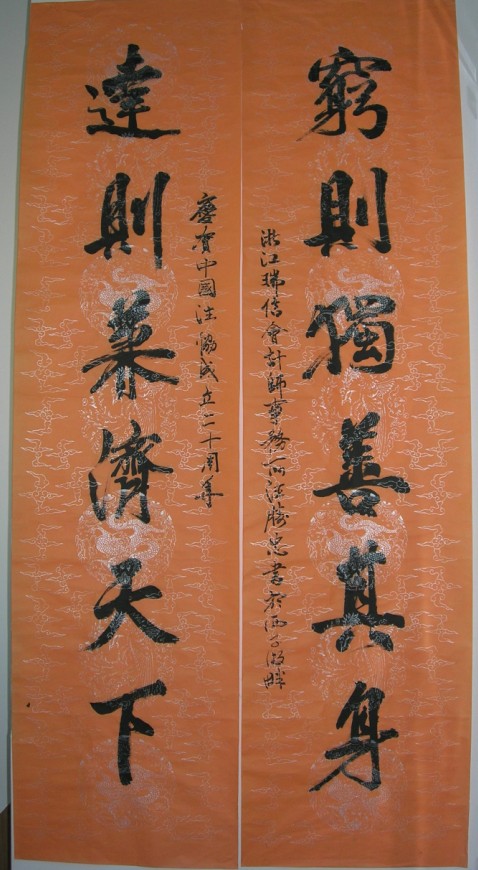 窮則獨善其身
浙江瑞信會計師事務所勝忠書於西子湖畔
慶賀中國注協成立二十周年
達則兼濟天下